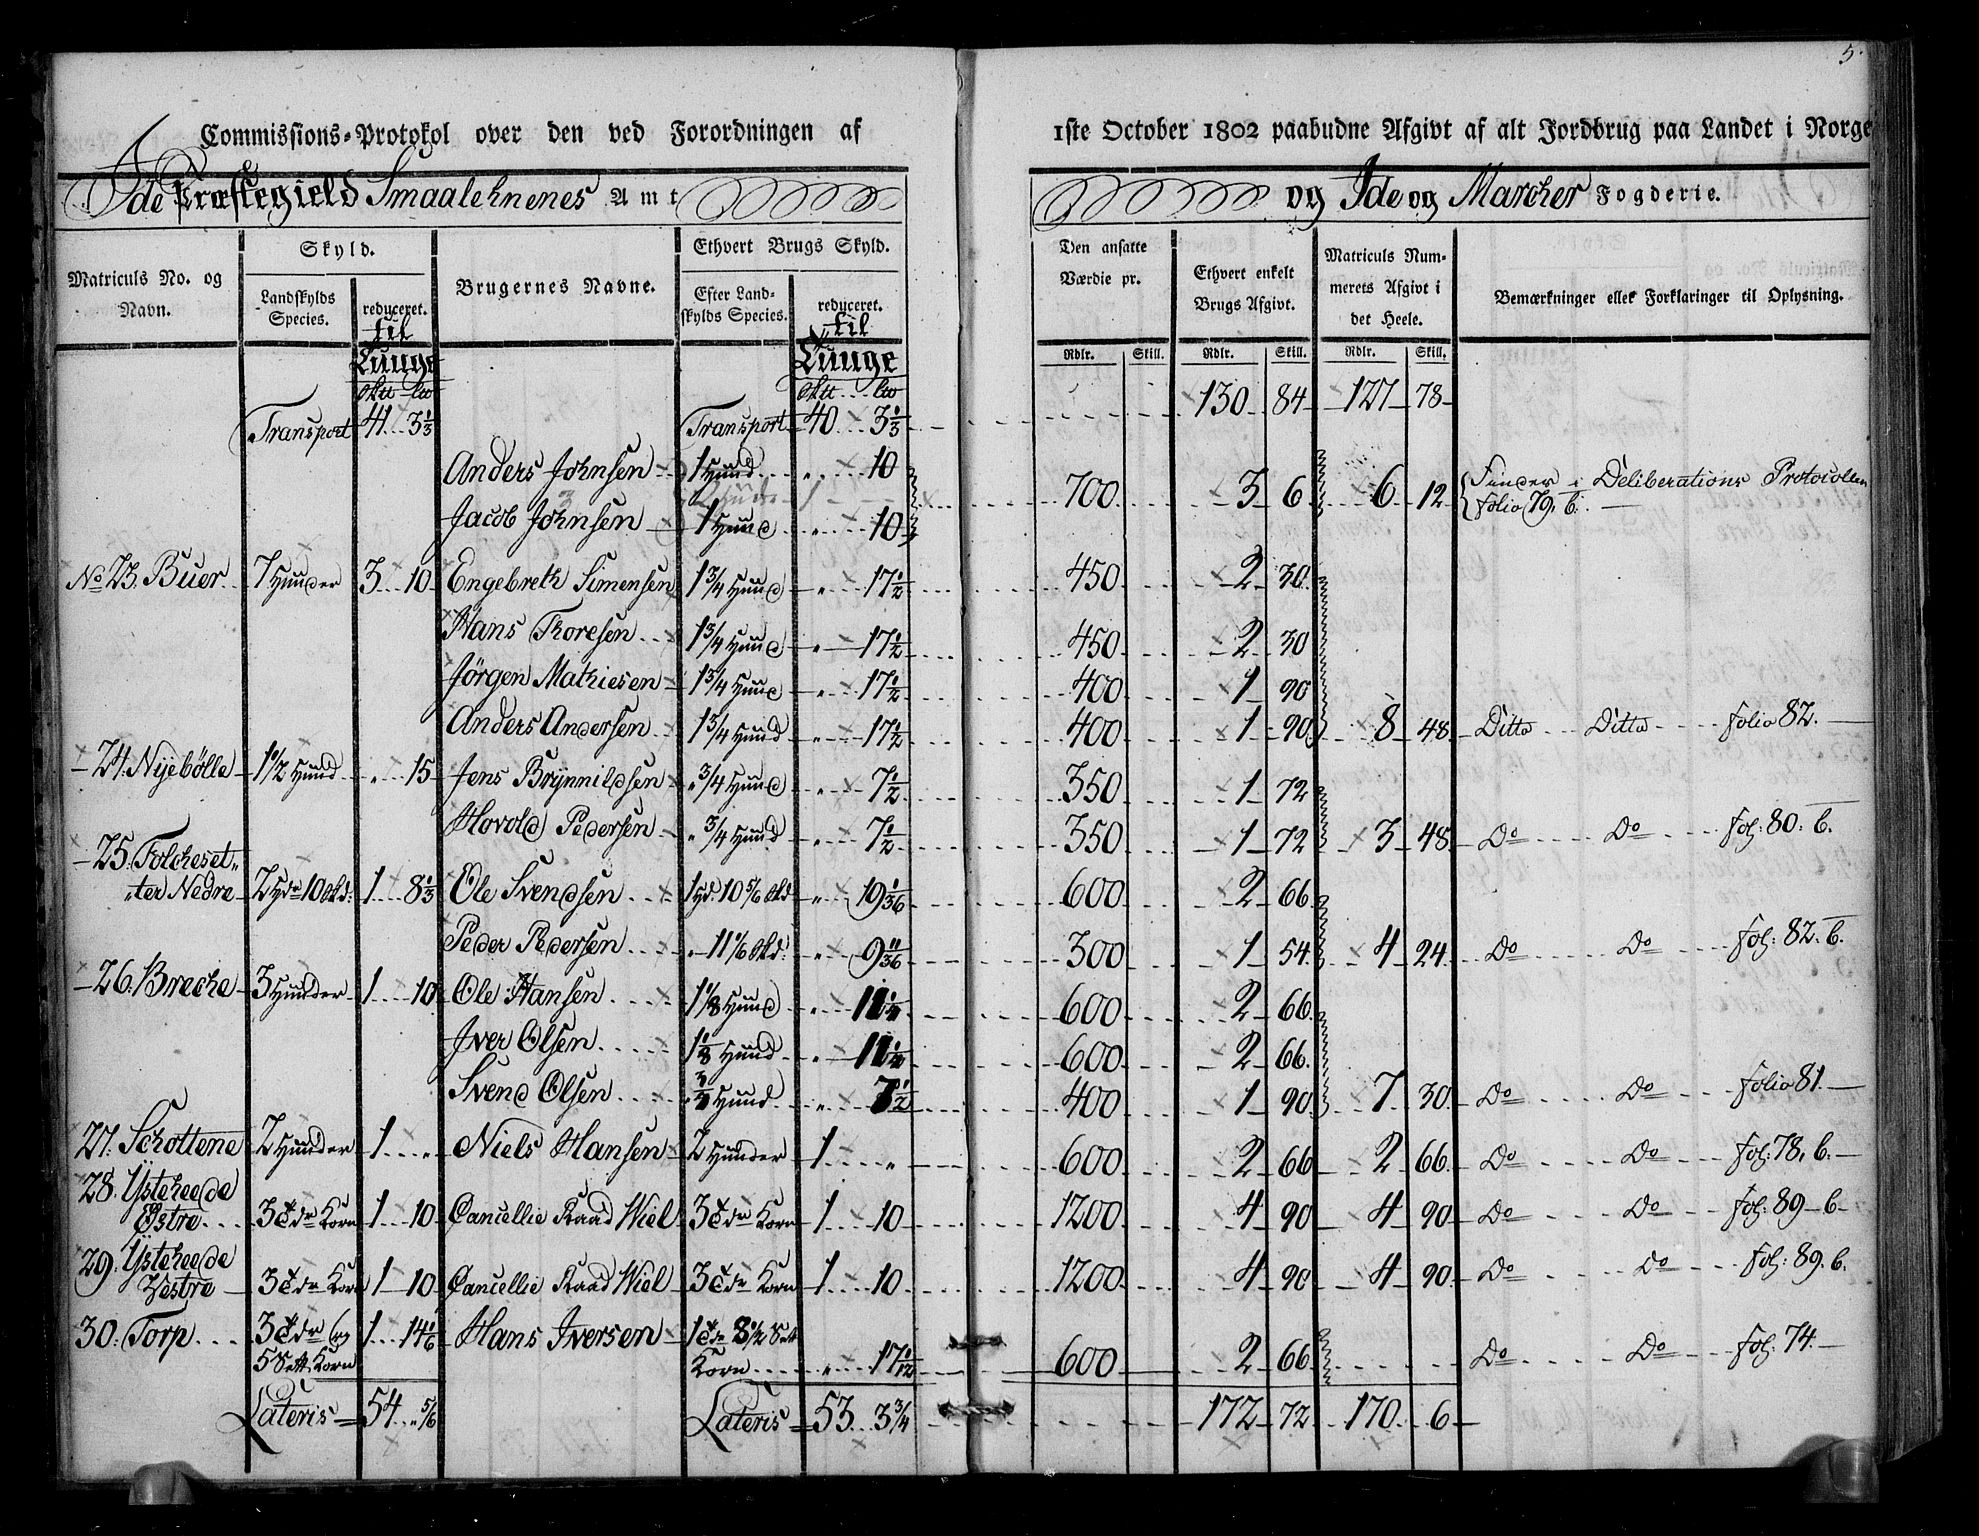 5.
Commissions-Protokol over den ved Forordningen af 1ste October 1802 paabudne Afgivt af alt Jordbrug paa Landet i Norge
Ide Præstegield Smaalehnenes Amt og Ide og Marcher Fogderie.
Matriculs No. og Navn. Skyld. Landskylds Species. reduceret. til Tunge Brugernes Navne. Ethvert Brugs Skyld. Efter Landskylds Species. reduceret. til Tunge Den ansatte Værdie pr. Ethvert enkelt Brugs Afgivt. Matriculs Nummerets Afgivt i det Heele. Bemærkninger eller Forklaringer til Oplysning.
Rdlr. Skill. Rdlr. Skill. Rdlr. Skill.
Transport 41 3 1/3 Transport 40 3 1/3 130 84 127 78
Anders Johnsen 1 Hund " 10
Jacob Johnsen 1 Hund " 10 700 3 6 6 12 Findes i Deliberations Protocollen folio 79, b.
No 23. Buer 7 Hunder 3 10 Engebreth Simensen 1 3/4 Hund " 17 1/2 450 2 30
Hans Thoresen 1 3/4 Hund " 17 1/2 450 2 30
Jörgen Mathiesen 1 3/4 Hund " 17 1/2 400 1 90
Anders Andersen 1 3/4 Hund " 17 1/2 400 1 90 8 48 Ditto Ditto folio 82.
24. Nyebölle 1 1/2 Hund " 15 Jens Brynnildsen " 3/4 Hund " 7 1/2 350 1 72
Hovold Pedersen " 3/4 Hund " 7 1/2 350 1 72 3 48 Do Do fol: 80. b.
25. Folcheset-
ter Nedre 2 Hdr 10 Skd: 1 8 1/3 Ole Svendsen 1 Hd. 10 5/6 Skd " 19 1/36 600 2 66
Peder Pedersen " 11 1/6 Skd: " 9 11/36 300 1 54 4 24 Do Do fol: 82. b.
26. Breche 3 Hunder 1 10 Ole Hansen 1 1/8 Hund " 11 1/4 600 2 66
Iver Olsen 1 1/8 Hund " 11 1/4 600 2 66
Svend Olsen " 3/4 Hund " 7 1/2 400 1 90 7 30 Do Do folio 81.
27. Schottene 2 Hunder 1 " Niels Hansen 2 Hunder 1 " 600 2 66 2 66 Do Do fol: 78, b.
28. Ysteheede
Östre 3 Tdr Korn 1 10 Cancellie Raad Wiel 3 Tdr Korn 1 10 1200 4 90 4 90 Do Do fol: 89 b
29. Ysteheede
Vestre 3 Tdr Korn 1 10 Cancellie Raad Wiel 3 Tdr Korn 1 10 1200 4 90 4 90 Do Do fol: 89. b.
30. Torp 3 Tdr og 1 14 1/6 Hans Iversen 1 Tde 8 1/2 Sett
5 Sett Korn Korn " 17 1/12 600 2 66 Do Do fol: 74.
Lateris 54 " 5/6 Lateris 53 3 3/4 172 72 170 6